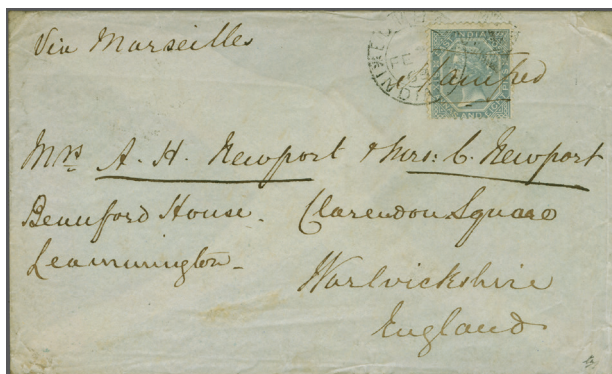 Via Marseilles
INDIA
Stamped
Mrs A. H. Newport & Mrs: C. Newport
Beauford House. Clarendon Square
Leamington
Warwickshire
England